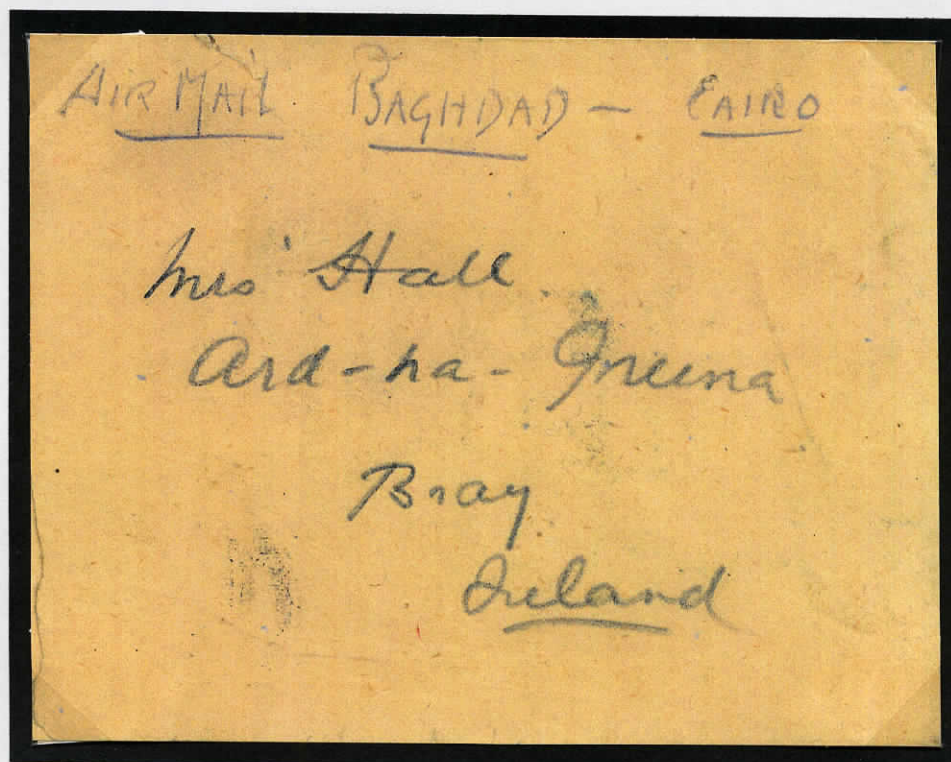 AIR MAIL BAGHDAD - CAIRO
Mrs Hall.
Ard-na-Greina
Bray
Ireland